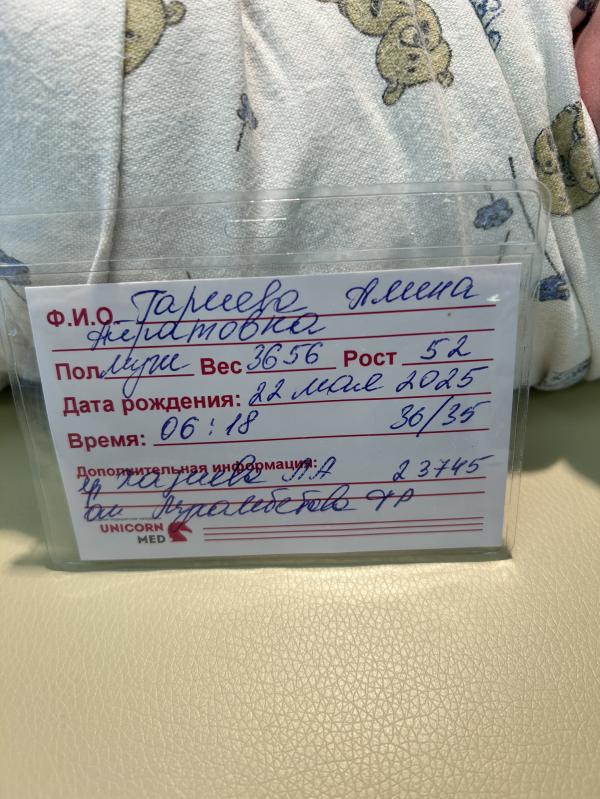 Ф.И.О. Гариева Алина
Айратовна
Пол муж Вес 3656 Рост 52
Дата рождения: 22 мая 2025
Время: 06:18 36/35
Дополнительная информация:
АА 23745
ФР
UNICORN
MED